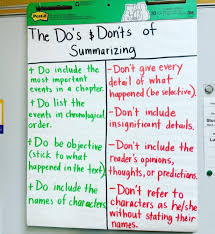 Post-it
The Do's & Don'ts of
Summarizing
+ Do include the
most important
events in a chapter.
+ Do list the
events in chronological
order.
+ Do be objective
(stick to what
happened in the text)
+ Do include the
names of characters
- Don't give every
detail of what
happened (be selective).
- Don't include
insignificant details.
- Don't include the
reader's opinions,
thoughts, or predictions.
- Don't refer to
characters as he/she
without stating their
names.